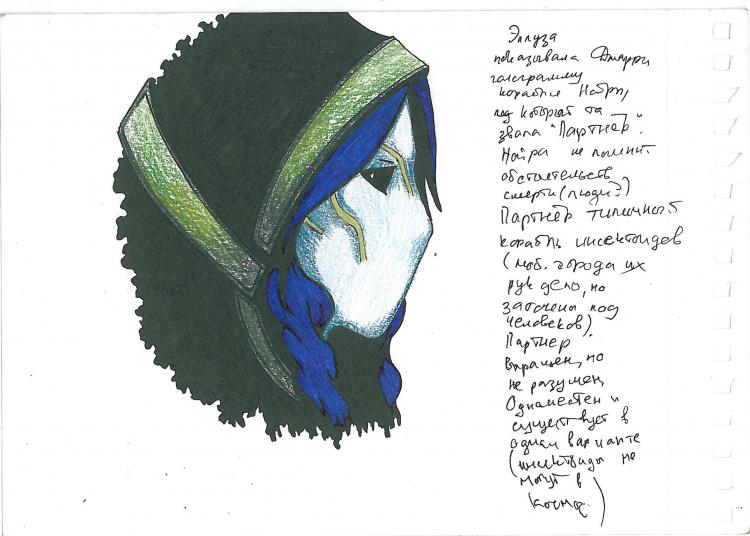 Эллуза
показывала Джарри
голограмму
корабля Нойры,
под который та
звала "Партнёр".
Нойра не помнит
обстоятельств
смерти (люди?)
Партнёр типичный
корабль инсектоидов
(моб. города их
рук дело, но
заточены под
человеков).
Партнёр
выращен, но
не разумен
Одноместен и
существует в
одном варианте
(инсектоиды не
могут в
космос.)